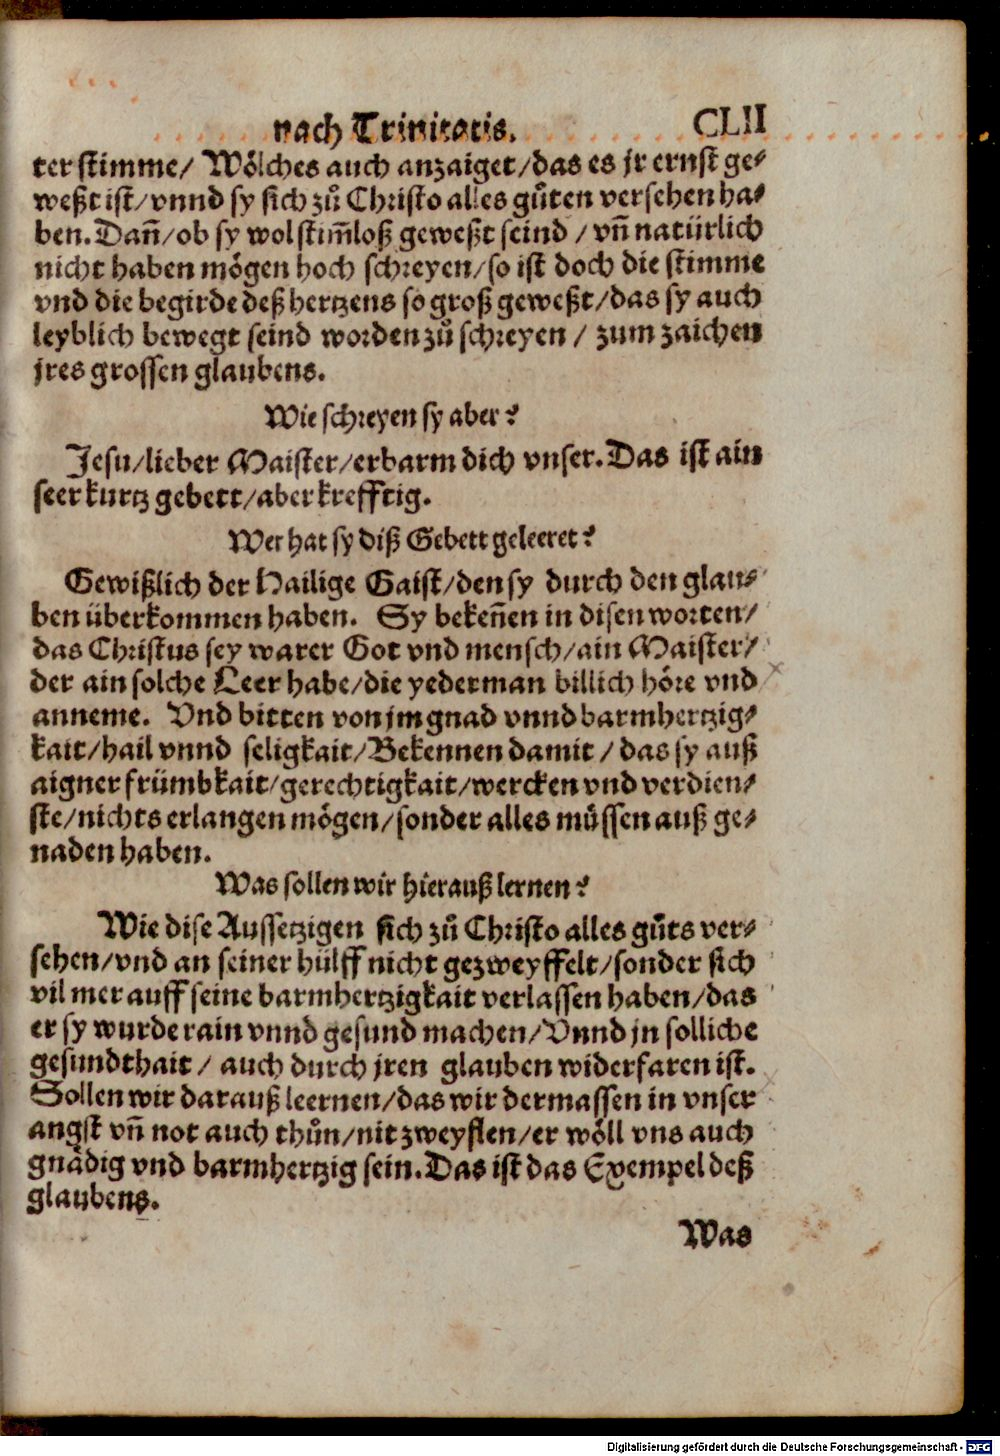 nach Trinitatis. CLII
ter stimme/ Wölches auch anzaiget/das es jr ernst ge⸗
weßt ist/vnnd sy sich zů Christo alles gůten versehen ha⸗
ben. Dañ/ob sy wol stim̃loß geweßt seind / vñ natürlich
nicht haben mögen hoch schreyen/so ist doch die stimme
vnd die begirde deß hertzens so groß geweßt/das sy auch
leyblich bewegt seind worden zů schreyen / zum zaichen
jres grossen glaubens.
Wie schreyen sy aber?
Jesu/lieber Maister/erbarm dich vnser. Das ist ain
seer kurtz gebett/aber krefftig.
Wer hat sy diß Gebett geleeret?
Gewißlich der Hailige Gaist/den sy durch den glau⸗
ben überkommen haben. Sy bekeñen in disen worten/
das Christus sey warer Got vnd mensch/ain Maister/
der ain solche Leer habe/die yederman billich höre vnd
anneme. Vnd bitten von jm gnad vnnd barmhertzig⸗
kait/hail vnnd seligkait/Bekennen damit / das sy auß
aigner frümbkait/gerechtigkait/wercken vnd verdien⸗
ste/nichts erlangen mögen/sonder alles müssen auß ge⸗
naden haben.
Was sollen wir hierauß lernen?
Wie dise Aussetzigen sich zů Christo alles gůts ver⸗
sehen/vnd an seiner hülff nicht gezweyffelt/sonder sich
vil mer auff seine barmhertzigkait verlassen haben/das
er sy wurde rain vnnd gesund machen/Vnnd jn solliche
gesundthait / auch durch jren glauben widerfaren ist.
Sollen wir darauß leernen/das wir dermassen in vnser
angst vñ not auch thůn/nit zweyflen/er wöll vns auch
gnädig vnd barmhertzig sein. Das ist das Exempel deß
glaubens.
Was
Digitalisierung gefördert durch die Deutsche Forschungsgemeinschaft - DFG